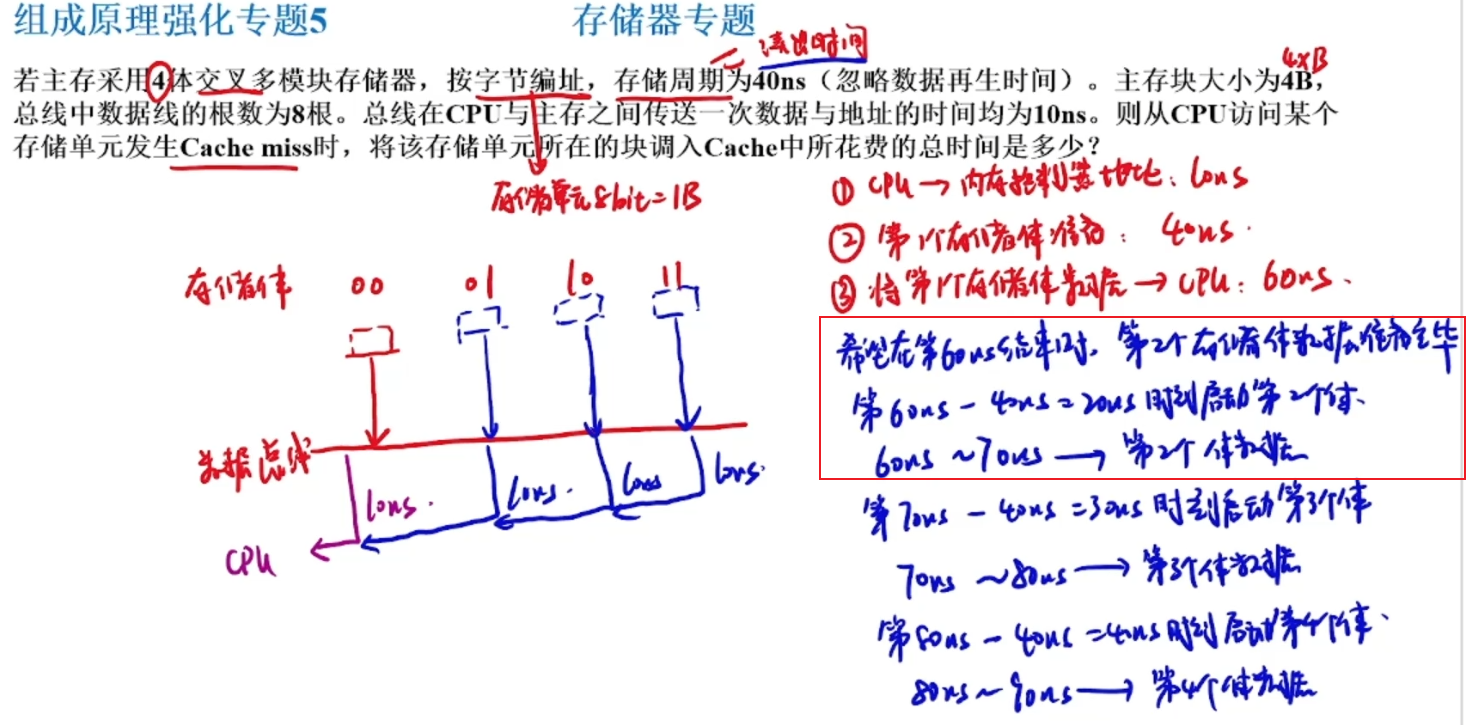 组成原理强化专题5 存储器专题
= 读出时间
4xB
若主存采用4体交叉多模块存储器，按字节编址，存储周期为40ns（忽略数据再生时间）。主存块大小为4B，
总线中数据线的根数为8根。总线在CPU与主存之间传送一次数据与地址的时间均为10ns。则从CPU访问某个
存储单元发生Cache miss时，将该存储单元所在的块调入Cache中所花费的总时间是多少？
存储单元8bit=1B
① CPU → 内存控制器地址：10ns
② 第1个存储体准备：40ns.
③ 将第1个存储体数据 → CPU：60ns.
存储体 00 01 10 11
希望在第60ns结束时，第2个存储体数据准备完毕
第60ns - 40ns = 20ns时刻启动第2个体.
60ns ~ 70ns → 第2个体数据
数据总线
10ns. 10ns. 10ns 10ns.
CPU
第70ns - 40ns = 30ns时刻启动第3个体
70ns ~ 80ns → 第3个体数据
第80ns - 40ns = 40ns时刻启动第4个体.
80ns ~ 90ns → 第4个体数据